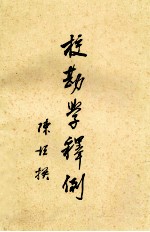 校勘学释例
陈垣撰